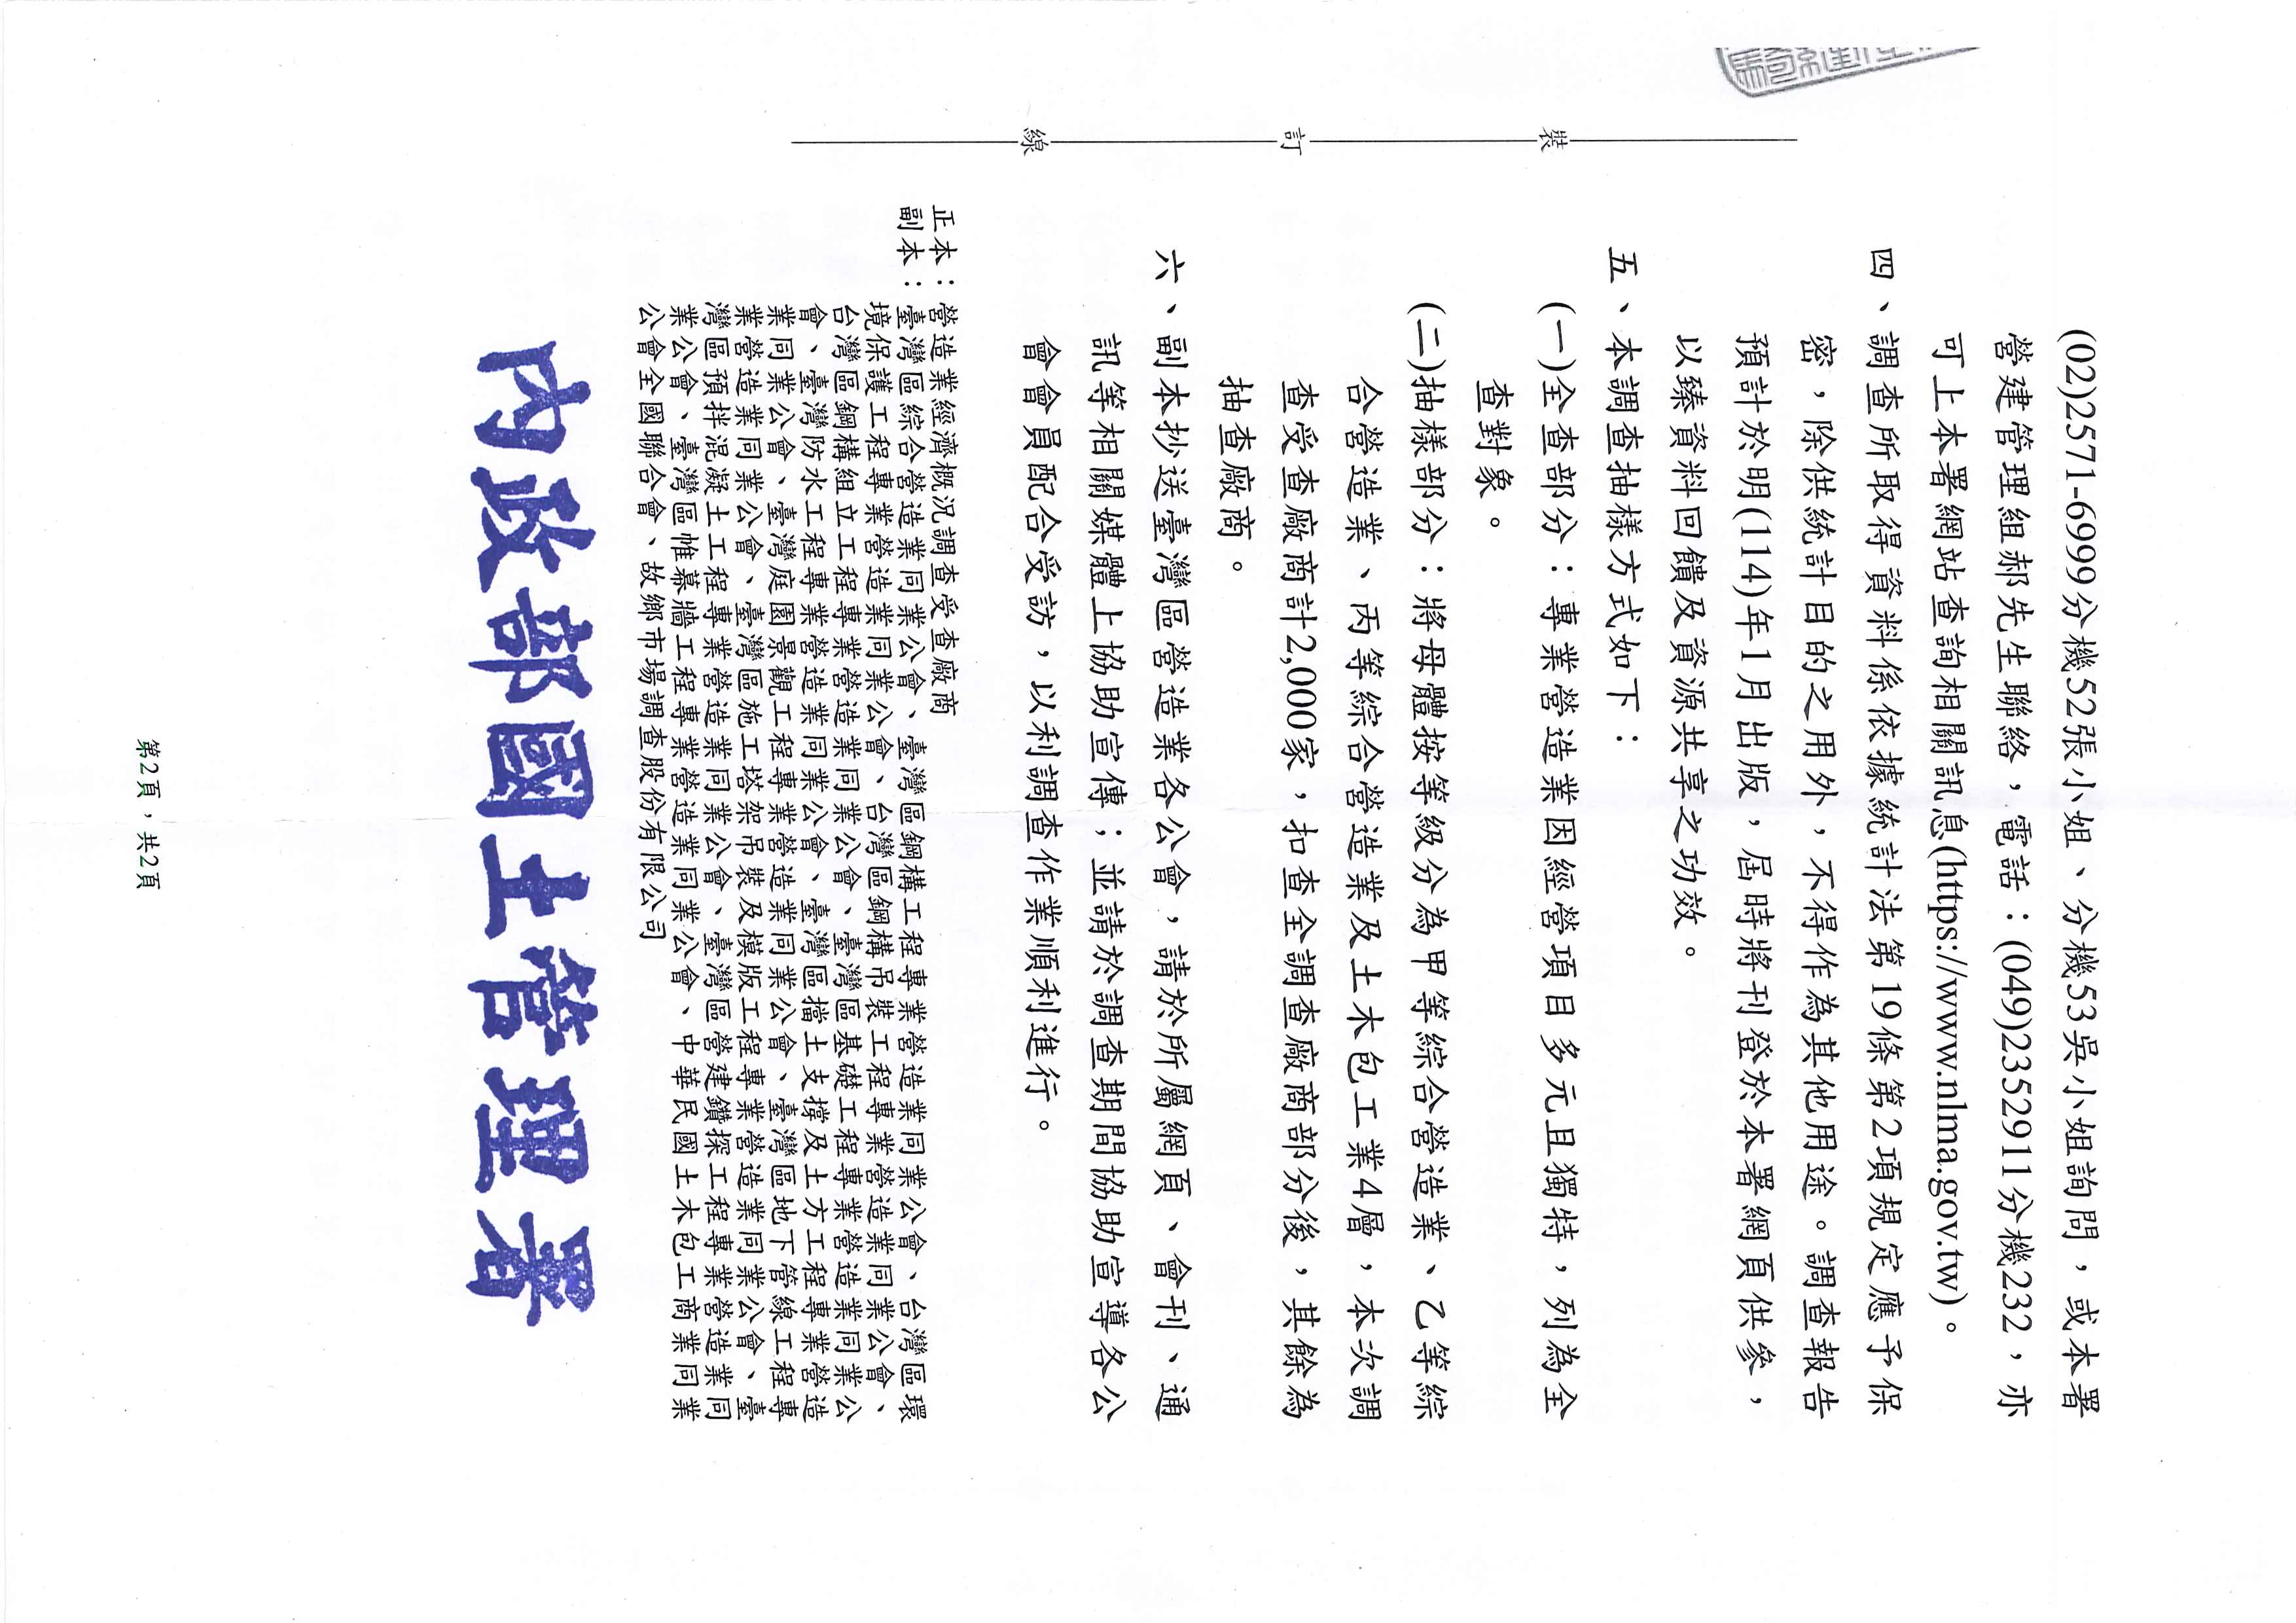 (02)2571-6999分機52張小姐、分機53吳小姐詢問，或本署
營建管理組郝先生聯絡，電話：(049)2352911分機232，亦
可上本署網站查詢相關訊息(https://www.nlma.gov.tw)。
四、調查所取得資料係依據統計法第19條第2項規定應予保
密，除供統計目的之用外，不得作為其他用途。調查報告
預計於明(114)年1月出版，屆時將刊登於本署網頁供參，
以臻資料回饋及資源共享之功效。
五、本調查抽樣方式如下：
(一)全查部分：專業營造業因經營項目多元且獨特，列為全
查對象。
(二)抽樣部分：將母體按等級分為甲等綜合營造業、乙等綜
合營造業、丙等綜合營造業及土木包工業4層，本次調
查受查廠商計2,000家，扣查全調查廠商部分後，其餘為
抽查廠商。
六、副本抄送臺灣區營造業各公會，請於所屬網頁、會刊、通
訊等相關媒體上協助宣傳；並請於調查期間協助宣導各公
會會員配合受訪，以利調查作業順利進行。
正本：營造業經濟概況調查受查廠商
副本：臺灣區綜合營造業同業公會、臺灣區鋼構工程專業營造業同業公會、台灣區環
境保護工程專業營造業同業公會、台灣區鋼構吊裝工程專業營造業同業公會、
台灣區鋼構組立工程專業營造業同業公會、臺灣區基礎工程專業營造業同業公
會、臺灣防水工程專業營造業同業公會、臺灣區擋土支撐及土方工程專業營造
業同業公會、臺灣庭園景觀工程專業營造業同業公會、臺灣區地下管線工程專
業營造業同業公會、臺灣區施工塔架吊裝及模版工程專業營造業同業公會、臺
灣區預拌混凝土工程專業營造業同業公會、臺灣區營建鑽探工程專業營造業同
業公會、臺灣區帷幕牆工程專業營造業同業公會、中華民國土木包工商業同業
公會全國聯合會、故鄉市場調查股份有限公司
內政部國土管理署
第2頁，共2頁
裝
訂
線